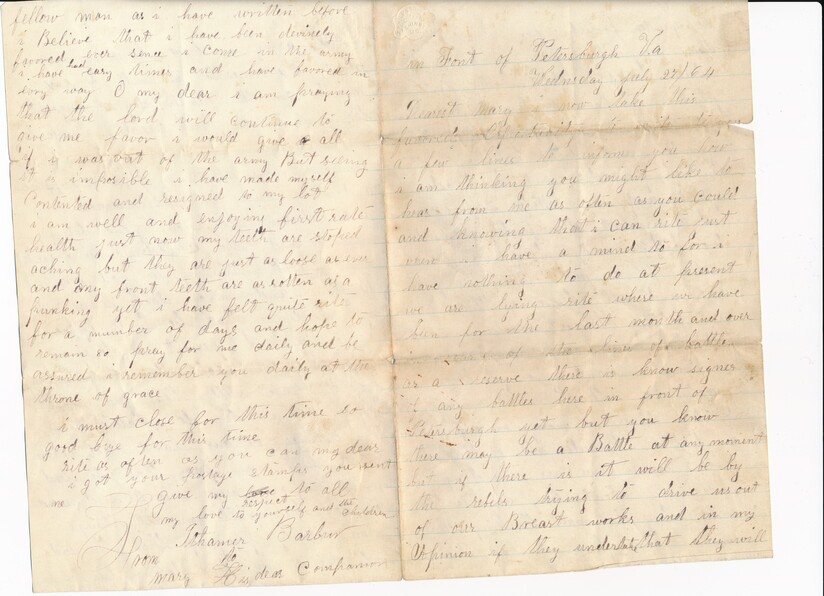 in Front of Petersburgh Va
Wednesday July 27/64
Dearest mary i now take this
favored opportunity to write to you
a few lines to informe you how
i am thinking you might like to
hear from me as often as you could
and knowing that i can rite just
when i have a mind to for i
have nothing to do at present
we are lying rite where we have
ben for the last month and over
in of the lines of battle
is a reserve there is know signes
of any battles here in front of
Petersburgh yet but you know
there may be a Battle at any moment
but if there is it will be by
the rebels trying to drive us out
of our Breast works and in my
Opinion if they undertake that they will
fellow man as i have written before
i Believe that i have been devinely
favored ever sence i come in the army
i have had easy times and have favored in
evry way O my dear i am praying
that the lord will continue to
give me favor i would give a all
if i was out of the army But seeing
it is imposible i have made myself
Contented and resigned to my lot
i am well and enjoying first rate
health just now my teeth are stoped
aching but they are just as loose as ever
and my front teeth are as rotten as a
punking yet i have felt quite rite
for a number of days and hope to
remain so pray for me daily and be
assured i remember you daily at the
throne of grace
i must close for this time so
good bye for this time
rite as often as you can my dear
i got your Postage stamps you sent
me
give my love respect to all
my love to yourself and the children
From Ithamer Barber
to
mary His dear Companion